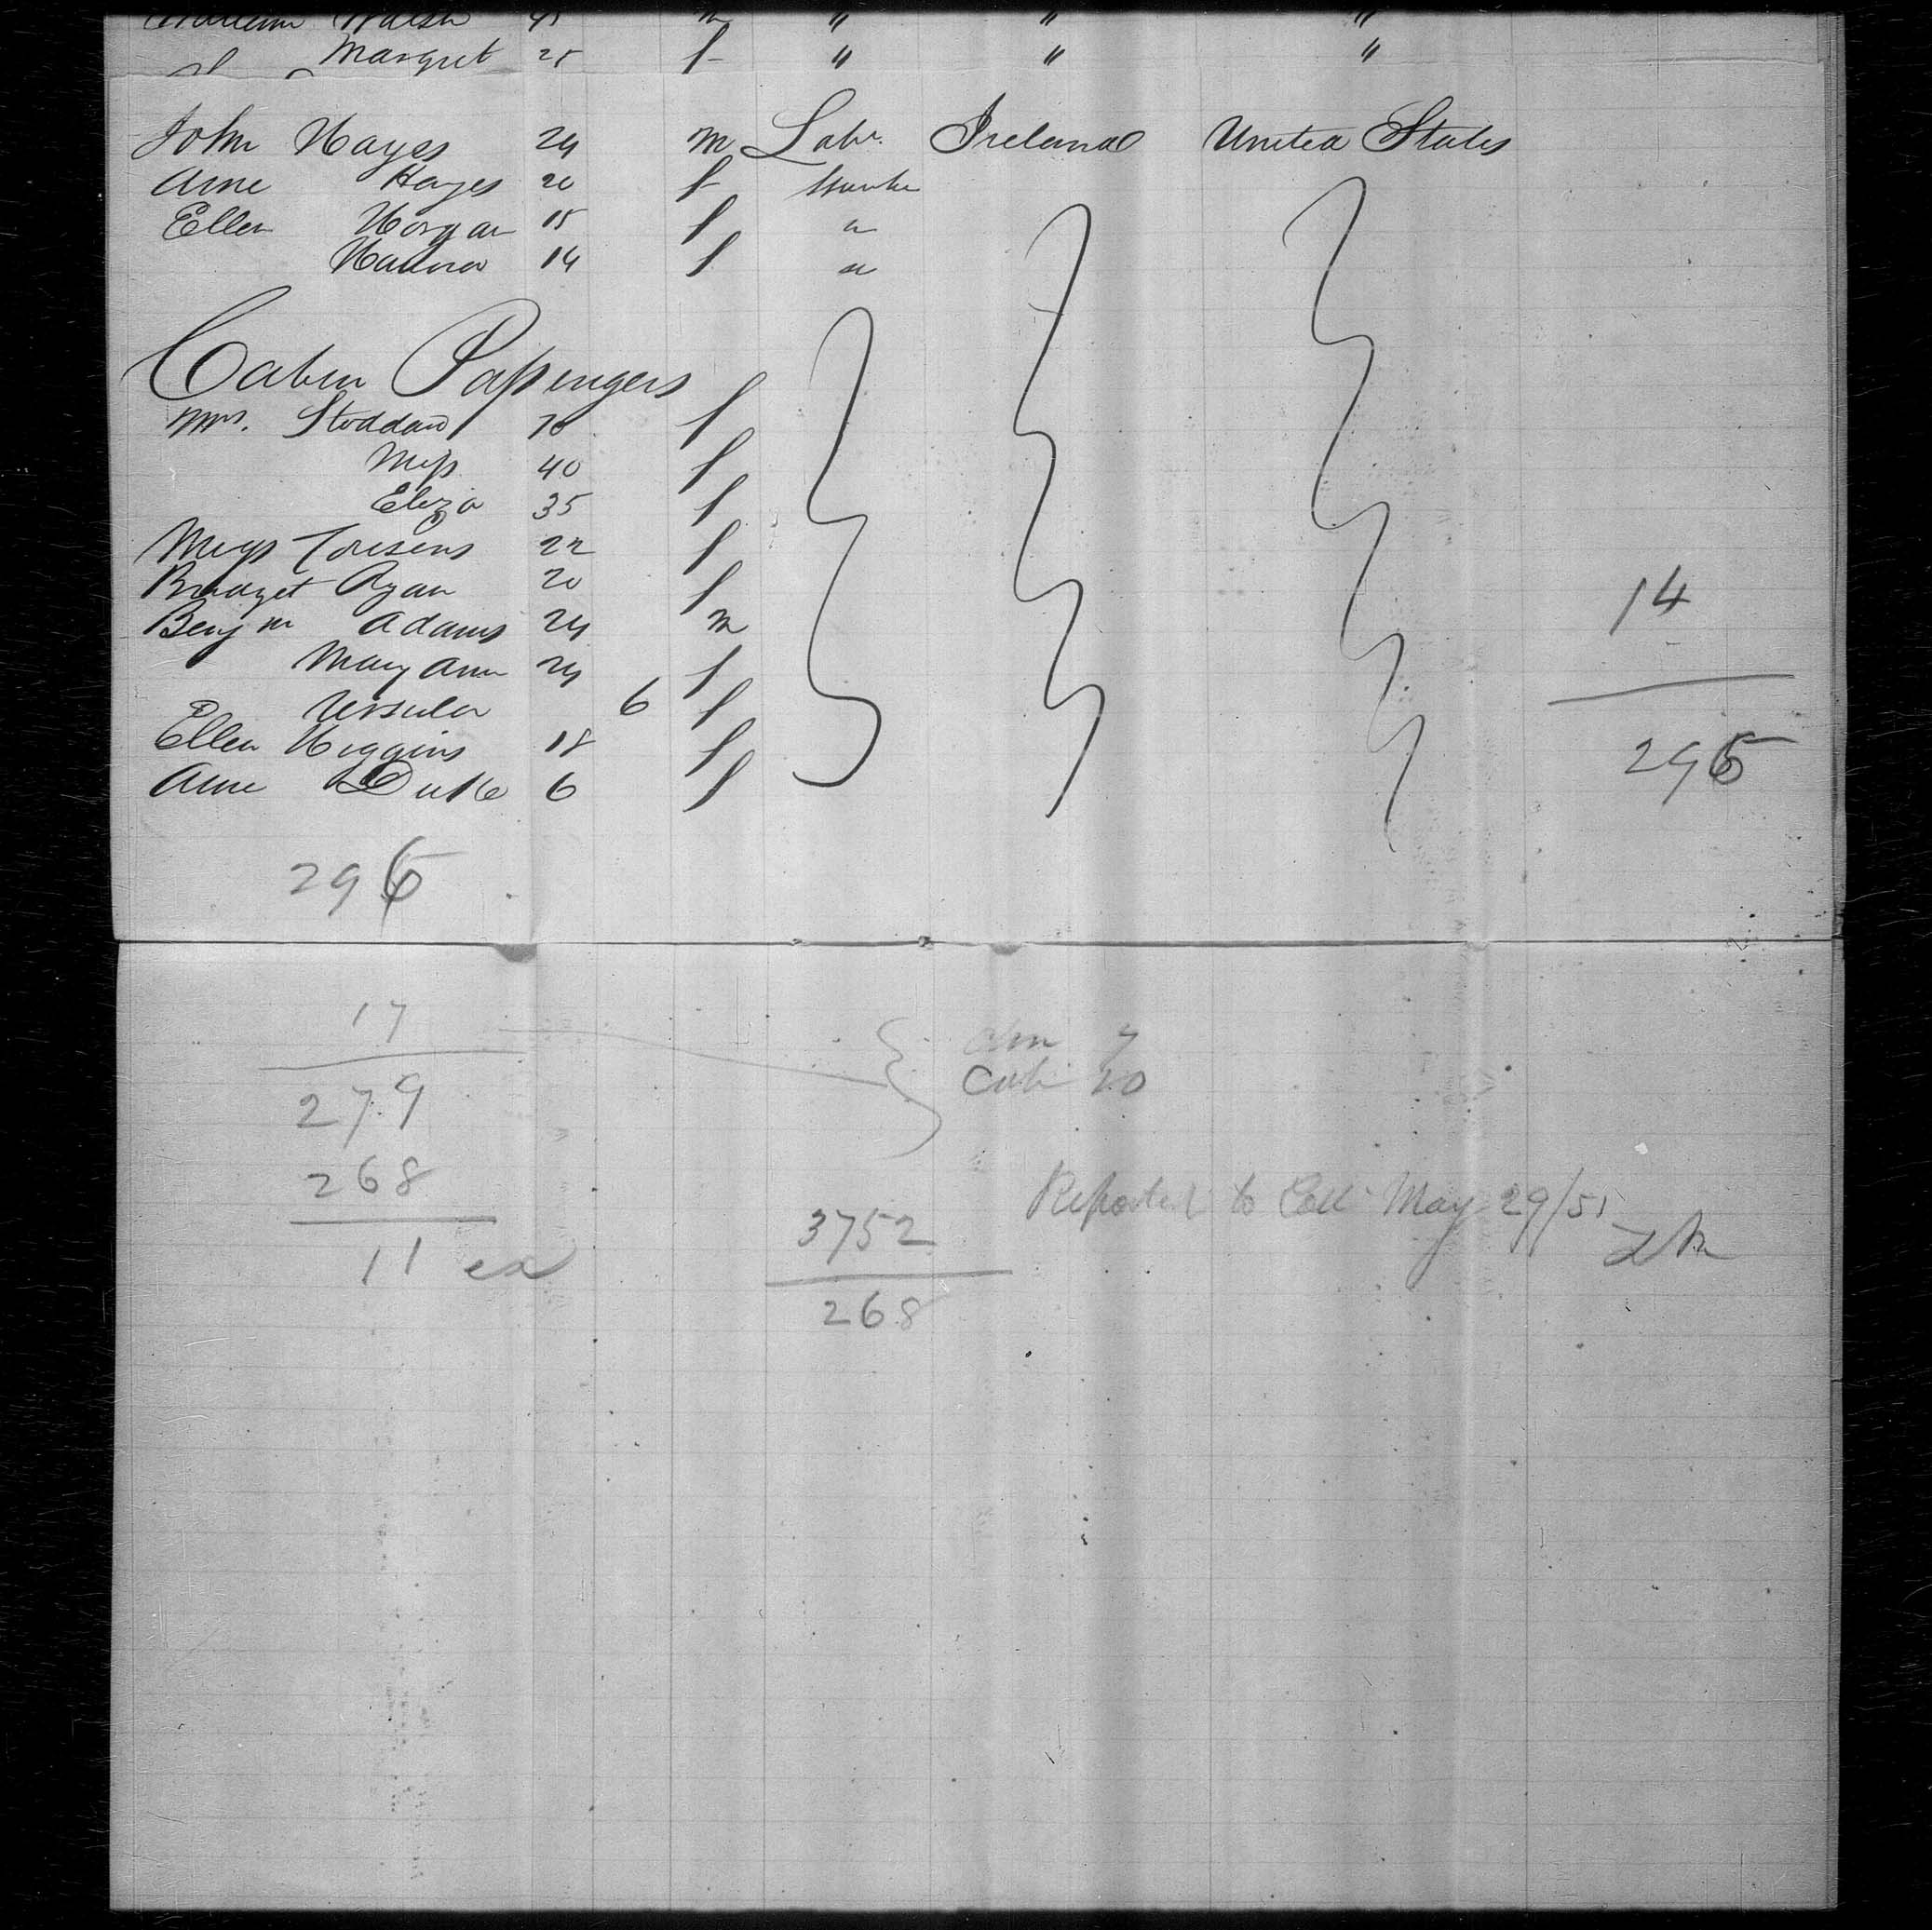 Walsh m " " "
Margret 25 f " " "
John Hayes 24 m Labr. Ireland United States
Ane Hayes 20 f
Ellen Horgan 15 f "
Hanna 14 f "
Cabin Passengers
Mrs. Stoddard 70 f
Miss 40 f
Eliza 35 f
22 f
Bridget Ryan 20 f
Benjm Adams 24 m
Mary Ann 24 f
Ursula 6 f
Ellen Higgins 18 f
Ane Duke 6 f
14
296
296
17
279
268
11 ex
Am 7
Cab 10
Reported to Coll May 29/51
3752
268